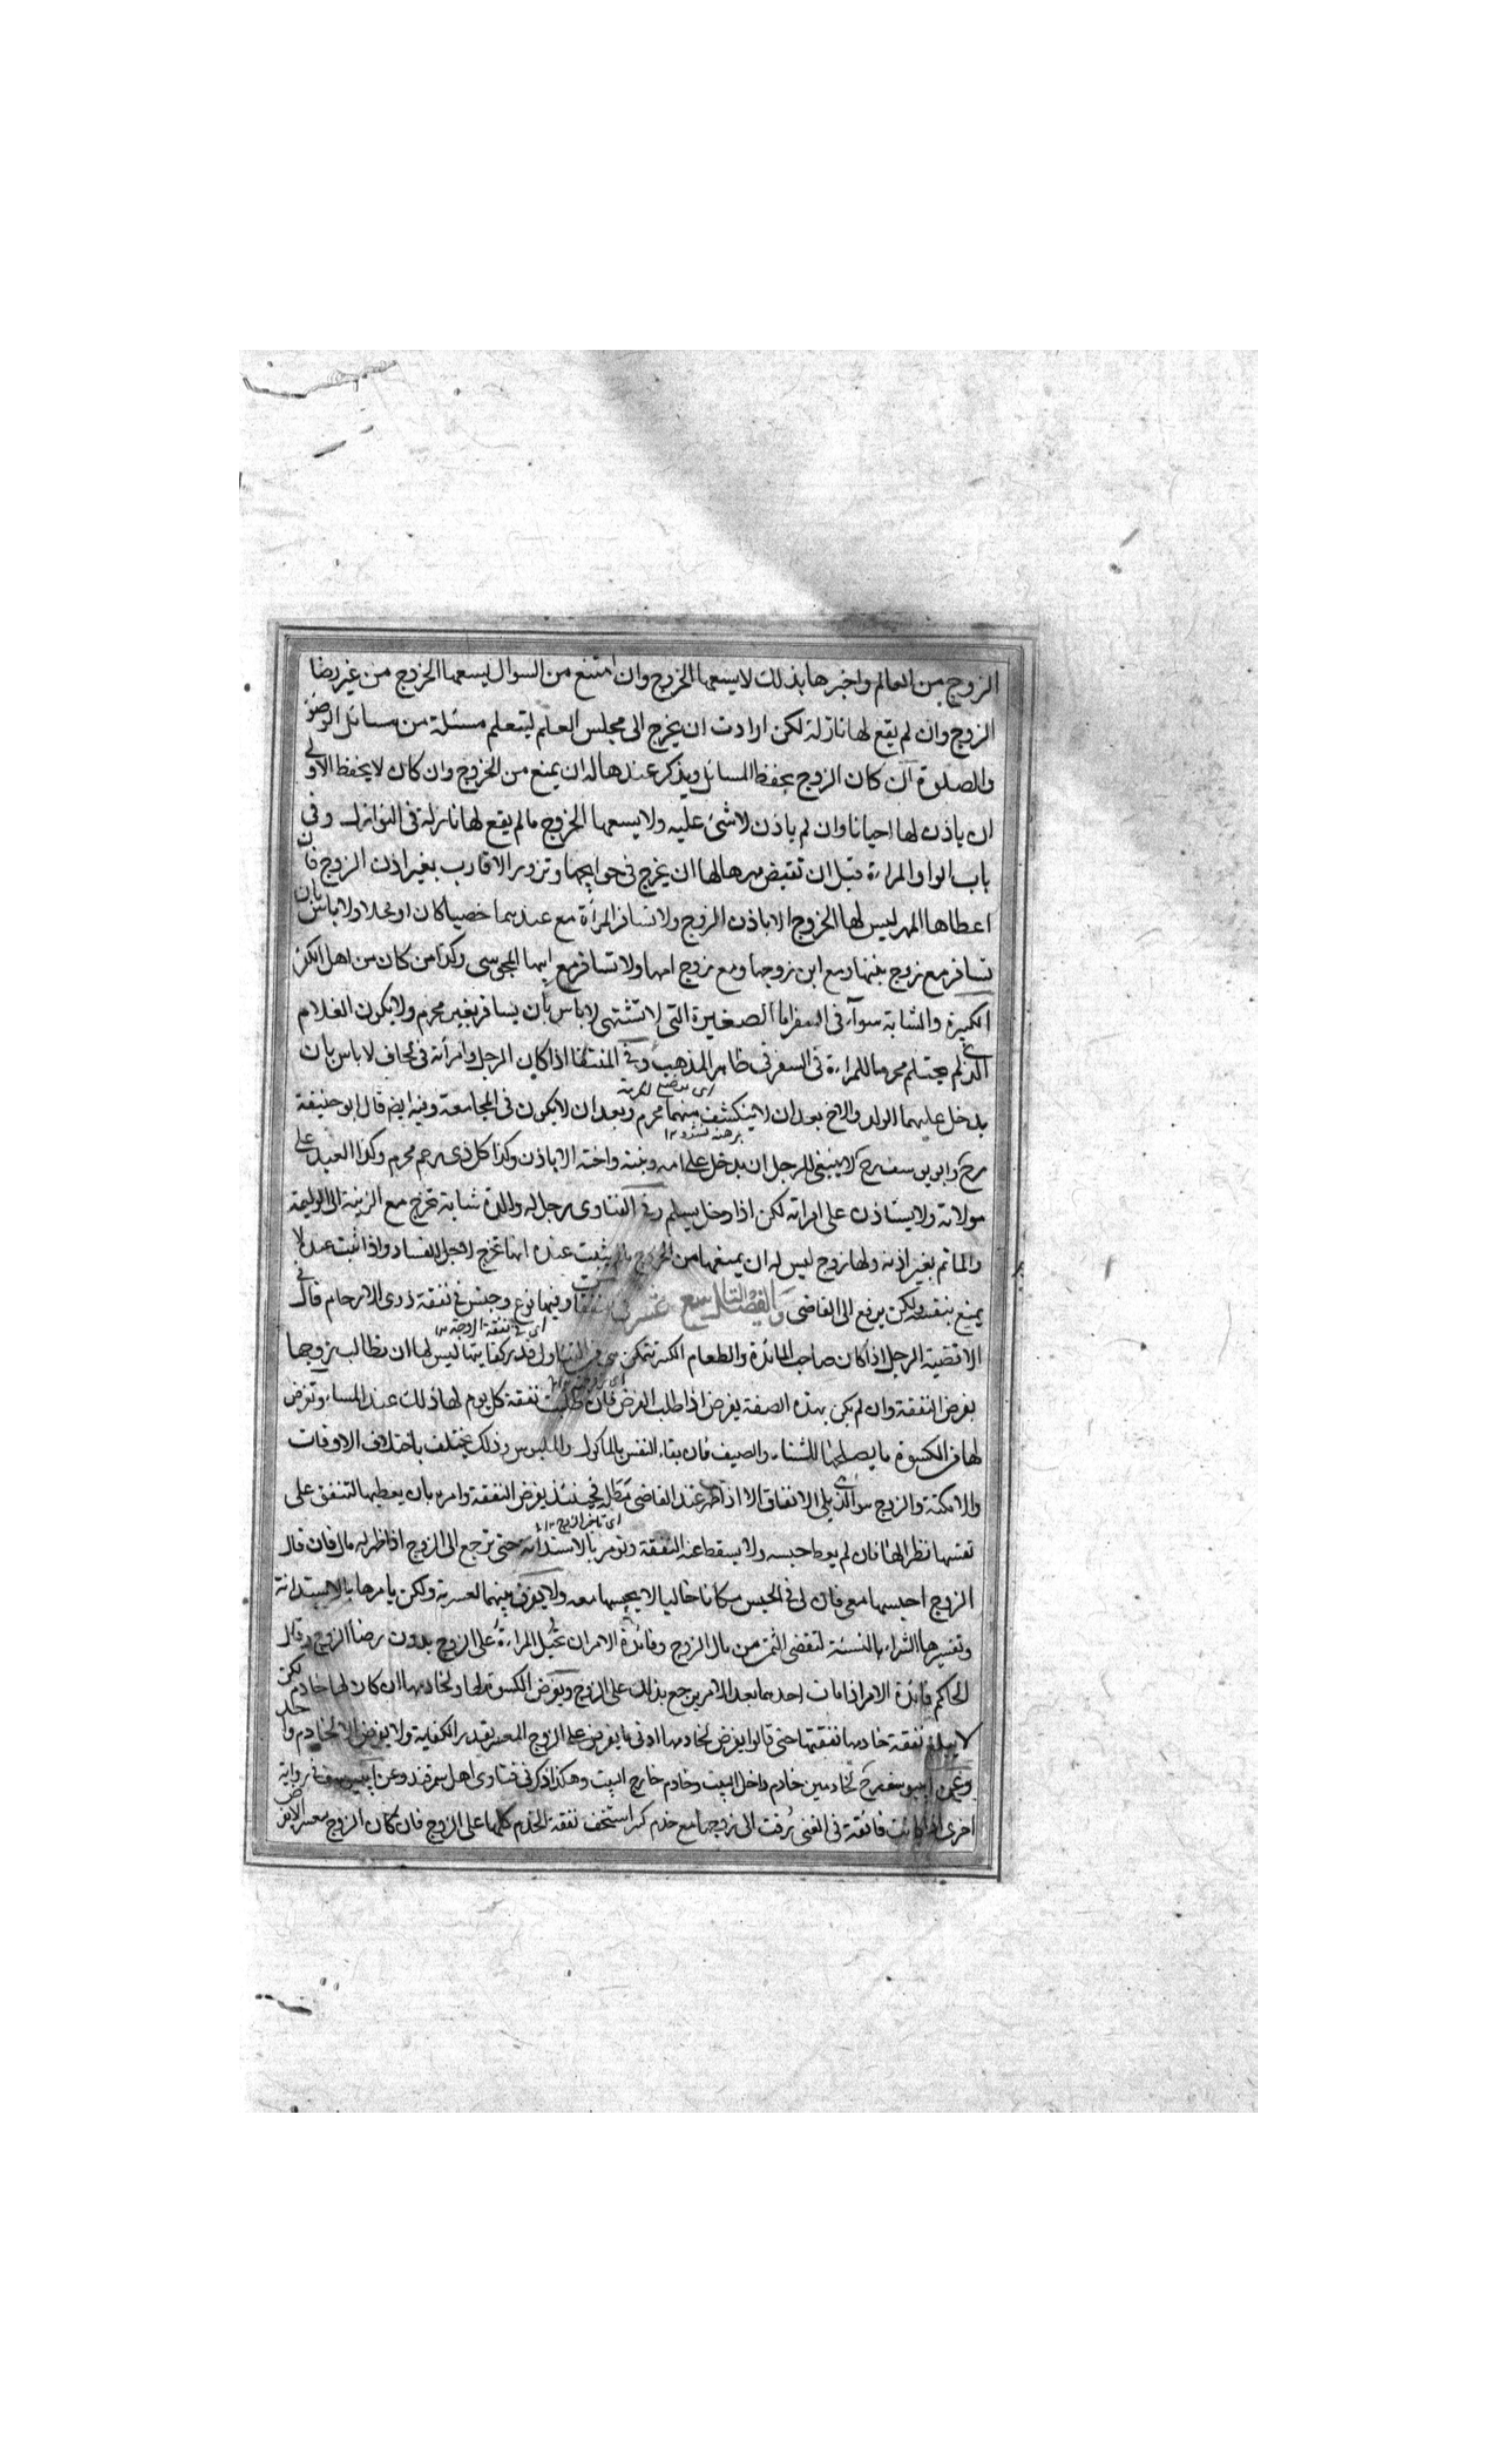 الزوج من العالم واخبرها بذلك لا يسعها الخروج وان امتنع من السوال يسعها الخروج من غير رضا
الزوج وان لم يقع لها نازلة لكن ارادت ان يخرج الى مجلس العلم ليتعلم مسئلة من مسائل الوضؤ
والصلوة ان كان الزوج يحفظ المسائل ويذكر عندها له ان يمنع من الخروج وان كان لا يحفظ الاولى
ان ياذن لها احيانا وان لم ياذن لا شئ عليه ولا يسعها الخروج ما لم يقع لها نازلة فى النوازل وفى
باب الواو المراءة قبل ان تقبض مهرها لها ان يخرج فى حوايجها وتزور الاقارب بغير اذن الزوج فان
اعطاها المهر ليس لها الخروج الا باذن الزوج ولا تسافر المرأة مع عبدهما خصيا كان او فحلا ولا باس بان
تسافر مع زوج بنتها ومع ابن زوجها ومع زوج امها ولا تسافر مع ابيها المجوسى وكذا من كان من اهل الكفر
الكبيرة والشابة سواء فى السفر اما الصغيرة التى لا تشتهى لا باس بان يسافر بغير محرم ولا يكون الغلام
الذى لم يحتلم محرما للمراءة فى السفر فى ظاهر المذهب وفى المنتقا اذا كان الرجل وامرأته فى لحاف لا باس بان
يدخل عليهما الولد والاخ بعد ان لا ينكشف منهما محرم وبعد ان لا يكون فى المجامعة وفيه ايضا قال ابو حنيفة
رح وابو يوسف رح لا ينبغى للرجل ان يدخل على امه وبنته واخته الا باذن وكذا كل ذى رحم محرم وكذا العبد على
مولاته ولا يستاذن على امراته لكن اذا دخل يسلم وفى الفتاوى رجل له والدة شابة تخرج مع الزينة الى الوليمة
والماتم بغير اذنه ولها زوج ليس له ان يمنعها من الخروج ما لم يثبت عنده انها تخرج لاجل الفساد واذا ثبت عنده لا
يمنع بنفسه ولكن يرفع الى القاضى والفصل التاسع عشر فى النفقات وفيها نوع وجنس فى نفقة ذوى الارحام قال فى
الاقضية الرجل اذا كان صاحب المائدة والطعام الكثير تتمكن هى من التناول قدر كفايتها ليس لها ان تطالب زوجها
اى فى نفقة الزوجة
بفرض النفقة وان لم يكن بهذه الصفة يفرض اذا طلب الفرض فان طلبت نفقة كل يوم لها ذلك عند المساء وتفرض
لها من الكسوة ما يصلحها للشتاء والصيف فان بقاء النفس بالماكول والملبوس وذلك يختلف باختلاف الاوقات
والامكنة والزوج هو الذى يلى الانفاق الا اذا ظهر عند القاضى مطله فحينئذ يفرض النفقة وامره بان يعطيها لتنفق على
نفسها نظرا لها فان لم يعط حبسه ولا يسقط عنه النفقة وتومر بالاستدانة حتى ترجع الى الزوج اذا ظهر له مال فان قال
الزوج احبسها معى فان لى فى الحبس مكانا خاليا لا يحبسها معه ولا يفرق بينهما لعسرته ولكن يامرها بالاستدانة
وتفسيرها الشراء بالنسئة لتقضى الثمن من مال الزوج وفائدة الامر ان تحيل المراءة على الزوج بدون رضا الزوج وقال
الحاكم فائدة الامر اذا مات احدهما بعد الامر يرجع بذلك على الزوج ويفرض الكسوة لها ولخادمها ان كان لها خادم لكن
لا يبلغ نفقة خادمها نفقتها حتى قالوا يفرض لخادمها ادنى ما يفرض على الزوج المعسر بقدر الكفاية ولا يفرض الا لخادم واحد
وعن ابى يوسف رح لخادمين خادم داخل البيت وخادم خارج البيت وهكذا ذكر فى فتاوى اهل سمرقند وعن ابى يوسف فى رواية
اخرى اذا كانت فائقة فى الغنى زفت الى زوجها مع خدم كثير استحق نفقة الخدم كلها على الزوج فان كان الزوج معسرا لا يفرض